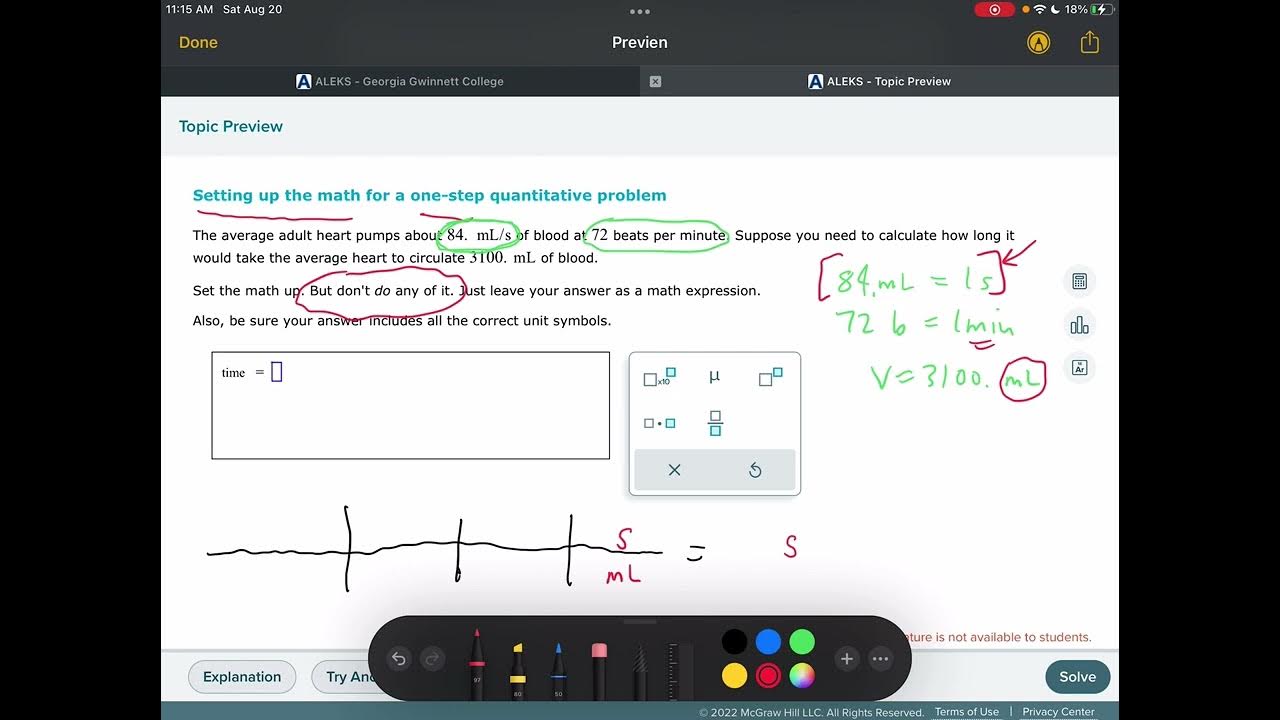 11:15 AM Sat Aug 20
18%
Done
Previen
ALEKS - Georgia Gwinnett College
ALEKS - Topic Preview
Topic Preview
Setting up the math for a one-step quantitative problem
The average adult heart pumps about 84. mL/s of blood at 72 beats per minute. Suppose you need to calculate how long it
would take the average heart to circulate 3100. mL of blood.
Set the math up. But don't do any of it. Just leave your answer as a math expression.
Also, be sure your answer includes all the correct unit symbols.
[84. mL = 1s]
72 b = 1min
V = 3100. mL
time =
x10
μ
Ar
S
mL
= S
97
80
50
ature is not available to students.
Explanation
Try An
Solve
© 2022 McGraw Hill LLC. All Rights Reserved. Terms of Use | Privacy Center